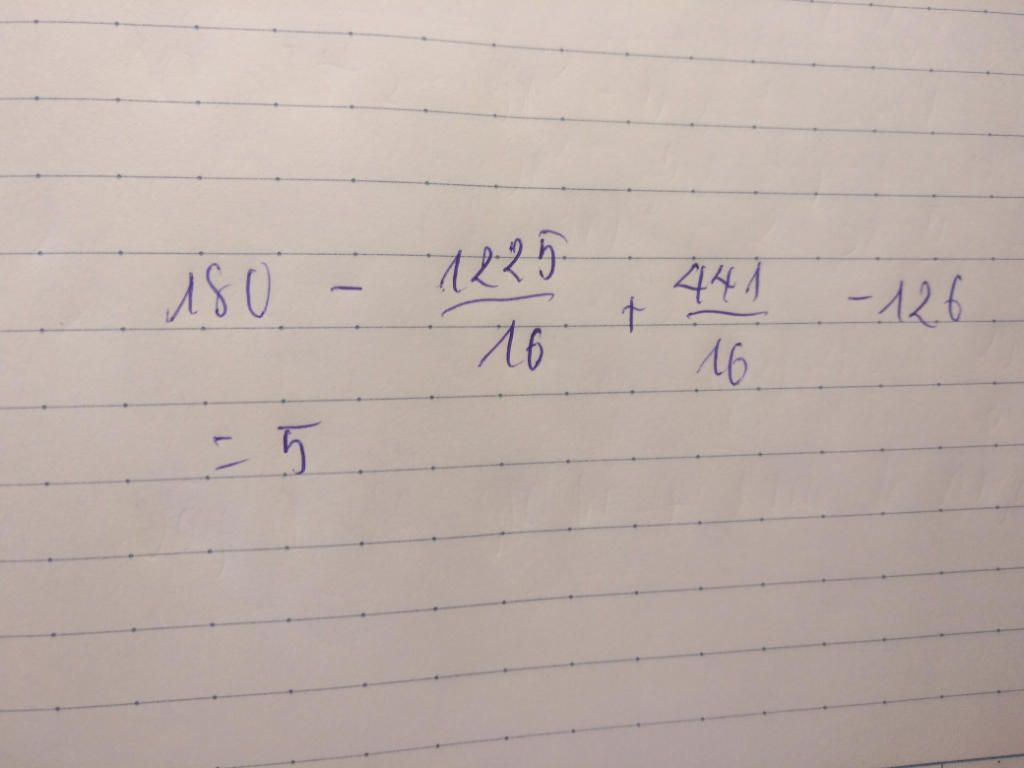 180 - 1225/16 + 441/16 - 126
= 5